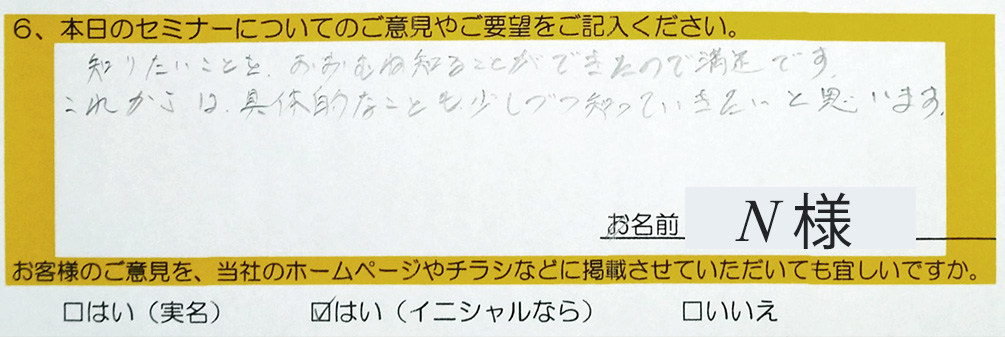 6、本日のセミナーについてのご意見やご要望をご記入ください。
知りたいことを、おおむね知ることができたので満足です。
これからは、具体的なことも少しづつ知っていきたいと思います。
お名前 N様
お客様のご意見を、当社のホームページやチラシなどに掲載させていただいても宜しいですか。
□はい（実名） ☑はい（イニシャルなら） □いいえ